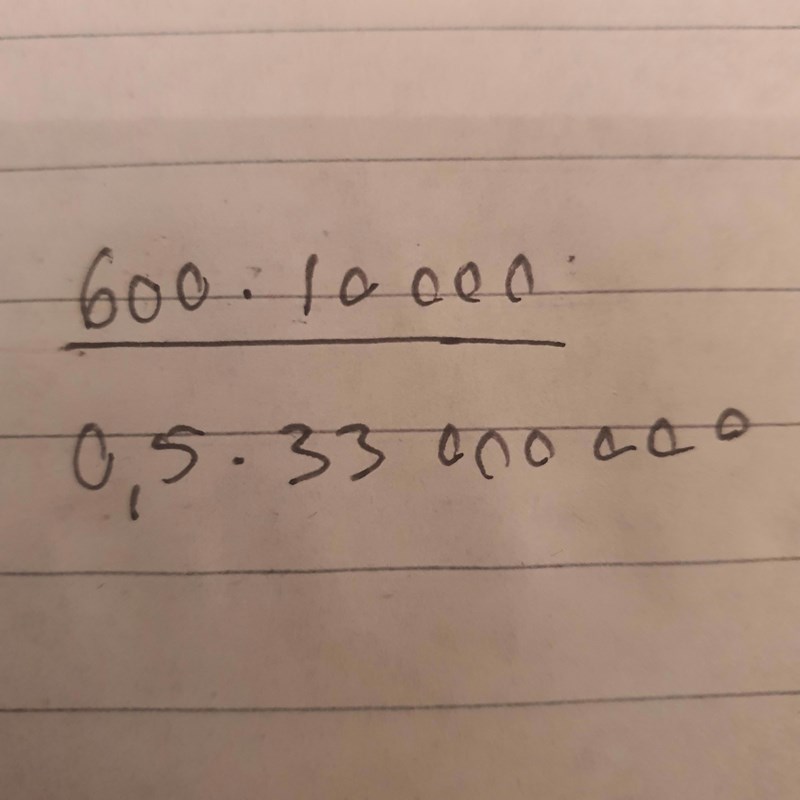 600 · 10 000
0,5 · 33 000 000